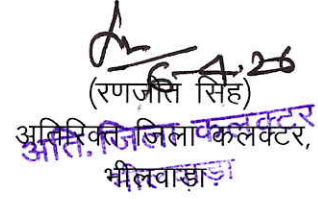 6-4-26
(रणजीत सिंह)
अतिरिक्त जिला कलक्टर,
अति. जिला कलक्टर
भीलवाड़ा